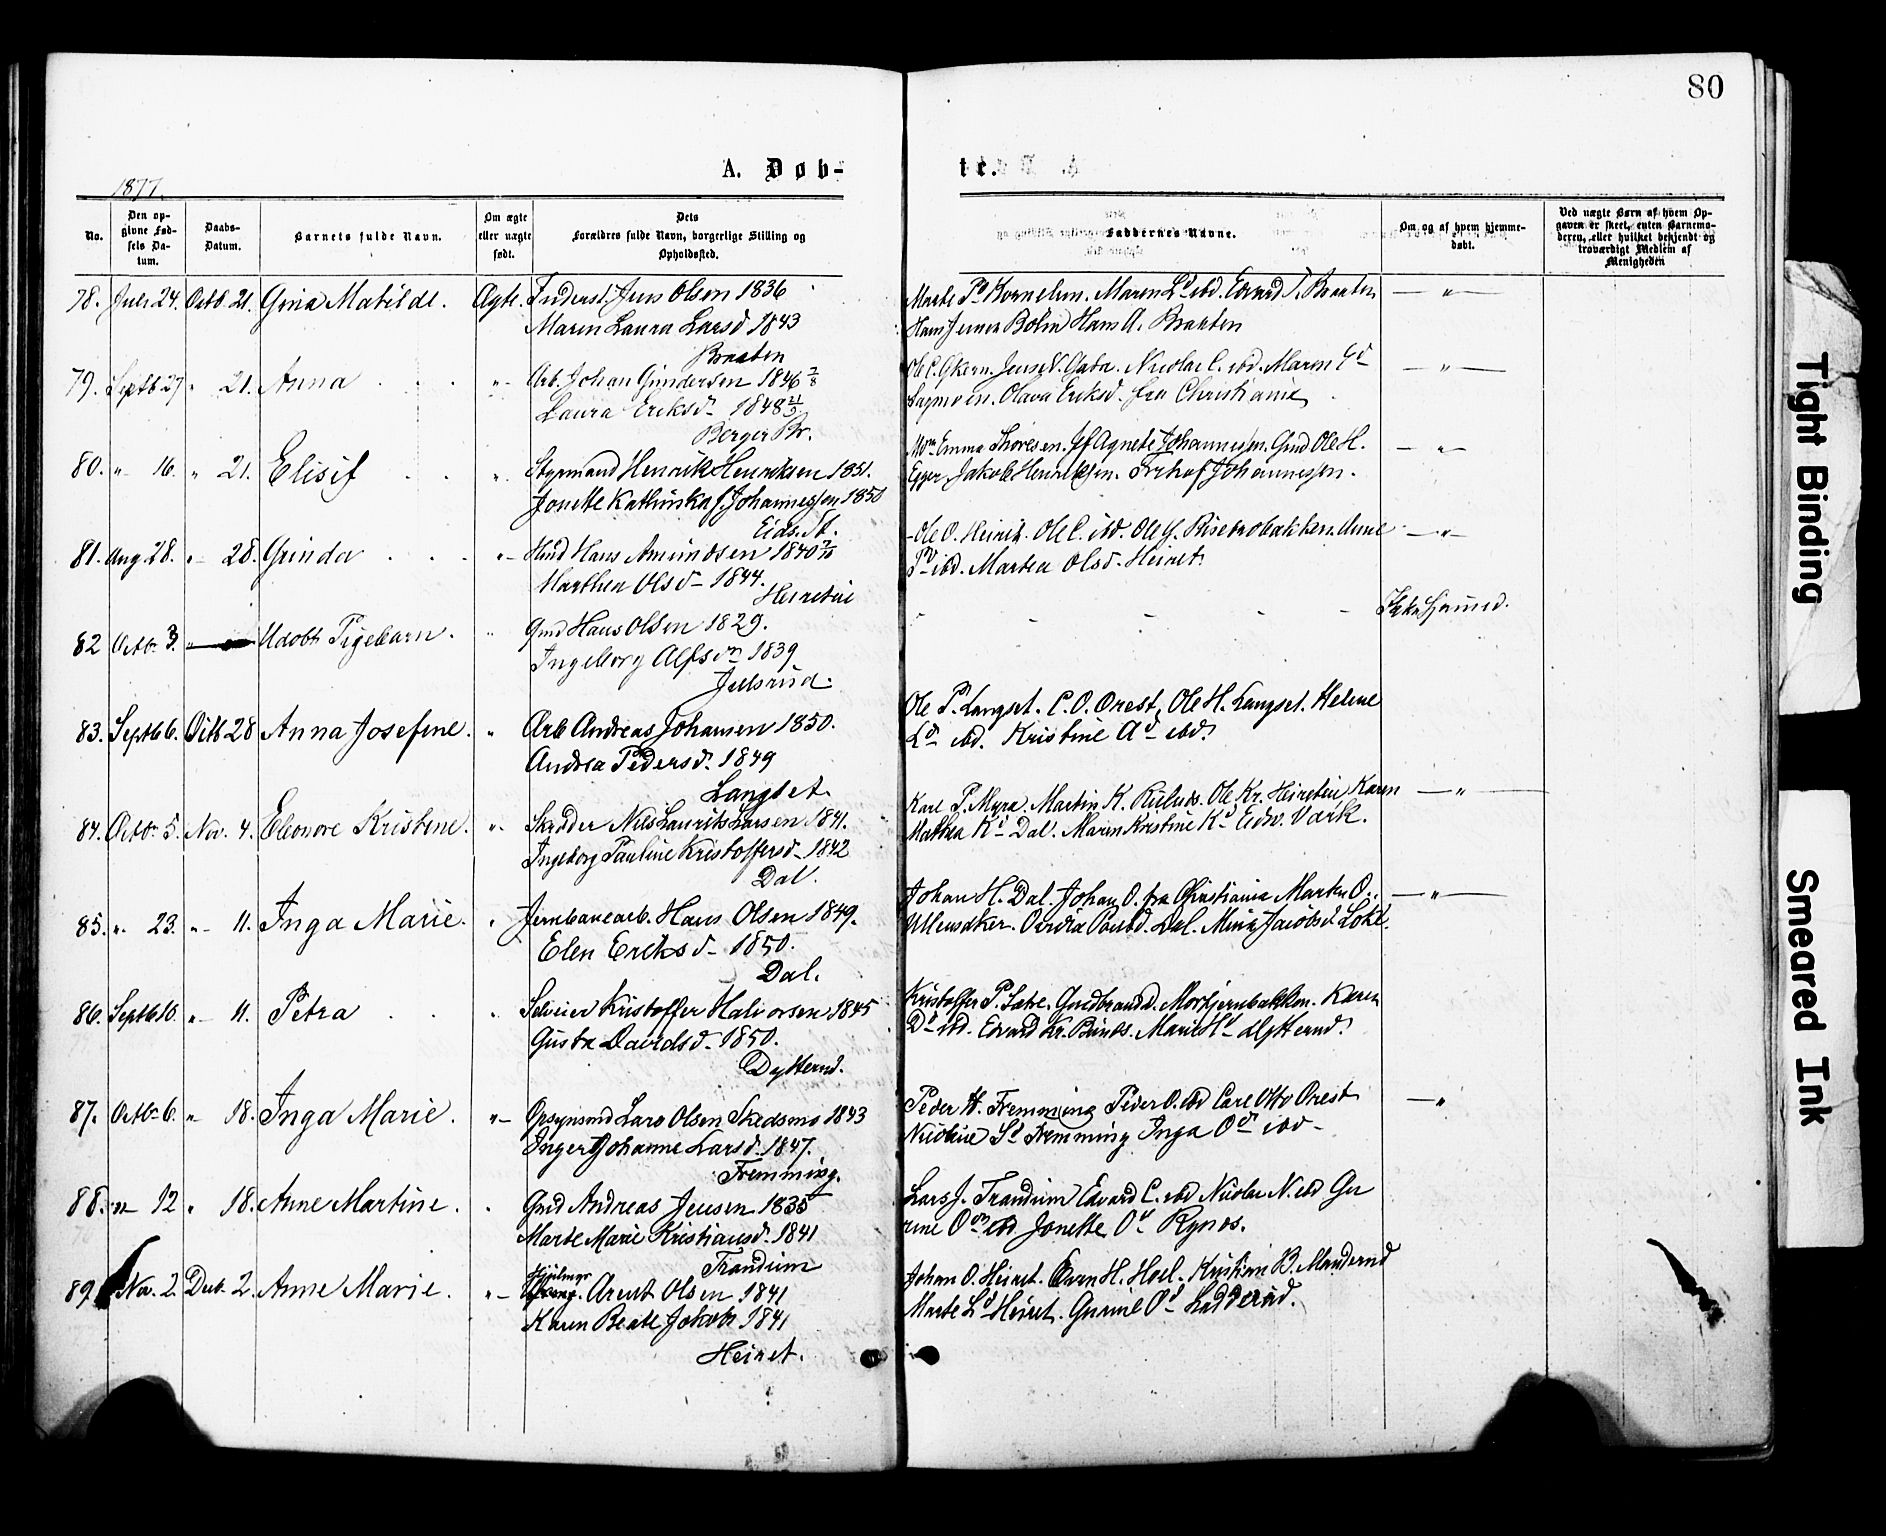 80
A. Døb-
te.
1877.
No.
Den op-
givne Fød-
sels Da-
tum.
Daabs-
Datum.
Barnets fulde Navn.
Om ægte
eller uægte
født.
Dets
Forældres fulde Navn, borgerlige Stilling og
Opholdssted.
Faddernes Navne.
Om og af hvem hjemme-
døbt.
Ved uægte Børn af hvem Op-
gaven er skeet, enten Barnemo-
deren, eller hvilket bekjendt og
troværdigt Medlem af
Menigheden
78. Juli 24. Octb. 21. Gina Matilde. Ægte. Jens Olsen 1836
Maren Laura Larsd 1843
Braaten
Marte Kornelius. Maren Ld ibd. Edvard T. Braaten
Hans Jensen Bolin Hans A. Braaten
79. Septb 27 " 21. Anna " Arb. Johan Gundersen 1846 7/8
Laura Eriksd 1848
Berger Br.
Nicolai C. ibd. Maren
Olava Eriksd. fra Christiania
80. " 16. " 21. Elisif " Styrmand Henrik Henriksen 1851.
Jonette Katinka f. Johannessen 1850
Eids. St.
Emma Thoresen. Jf Agnete Johannessen. Gmd Ole H.
Jakob Henriksen. Johannessen.
81. Aug 28. " 28. Ginda " Hmd Hans Amundsen 1840
Marthea Olsd 1844.
Heiretei
Ole O. Heiret. Ole C. ibd. Ole G. Risebrobakken. Anne
Pd ibd. Martea Olsd. Heiret.
82 Octbr 3. " Udøbt Pigebarn. " Gmd Hans Olsen 1829.
Ingeborg Alfsdn 1839
Julsrud.
83. Septb 6. Octb 28 Anna Josefine. " Arb Andreas Johansen 1850.
Andrea Pedersd. 1849
Langset.
Ole P. Langset. C. O. Ørest, Ole H. Langset. Helene
Ld ibd. Kristine Ad ibd.
84. Octbr 5. Nov. 4. Eleonore Kristine. " Skrædder Nils Laurits Larsen 1841.
Ingeborg Pauline Kristoffersd 1842
Dal.
Karl P. Myra. Martin K. Ole Kr. Heiretei Karen
Mathea Kd Dal. Maren Kristine Kd Eidsv. Værk.
85. " 23. " 11. Inga Marie. " Jernbanearb. Hans Olsen 1849.
Elen Eriksd 1850.
Dal.
Johan H. Dal. Johan O. fra Christiania Marten O.
Ullensaker. Dal. Mina Jacobsd Løkke.
86. Septb 16. " 11. Petra " Selveier Kristoffer Halvorsen 1845
Gusta Davidsd 1850.
Dytterud.
Kristoffer P. Gudbrand d. Karen
Dd ibd. Edvard Kr. Marie Hd Dytterud.
87. Octbr 6. " 18. Inga Marie. " Opsynsmd Lars Olsen Skedsmo 1843
Inger Johanne Larsd. 1847.
Fremming.
Peder H. Fremming Peder O. ibd Carl Otto Ørest
Nicoline Fremming Inga Od ibd
88. " 12 " 18. Anne Martine. " Gmd Andreas Jensen 1835
Marte Marie Kristiansd. 1841
Trandum
Lars J. Trandum Edvard C. ibd Nicolai N. ibd Gu
rine Od ibd Jonette Od Rynos.
89. Nov. 2. Decb. 2. Anne Marie. " Arent Olsen 1841
Karen Beate Jakobs 1841
Heiret.
Johan O. Heiret. Even H. Hoel. Kristian B. Manderud
Marte Ld Heiret. Gurine Od Ladderud.
Tight Binding
Smeared Ink